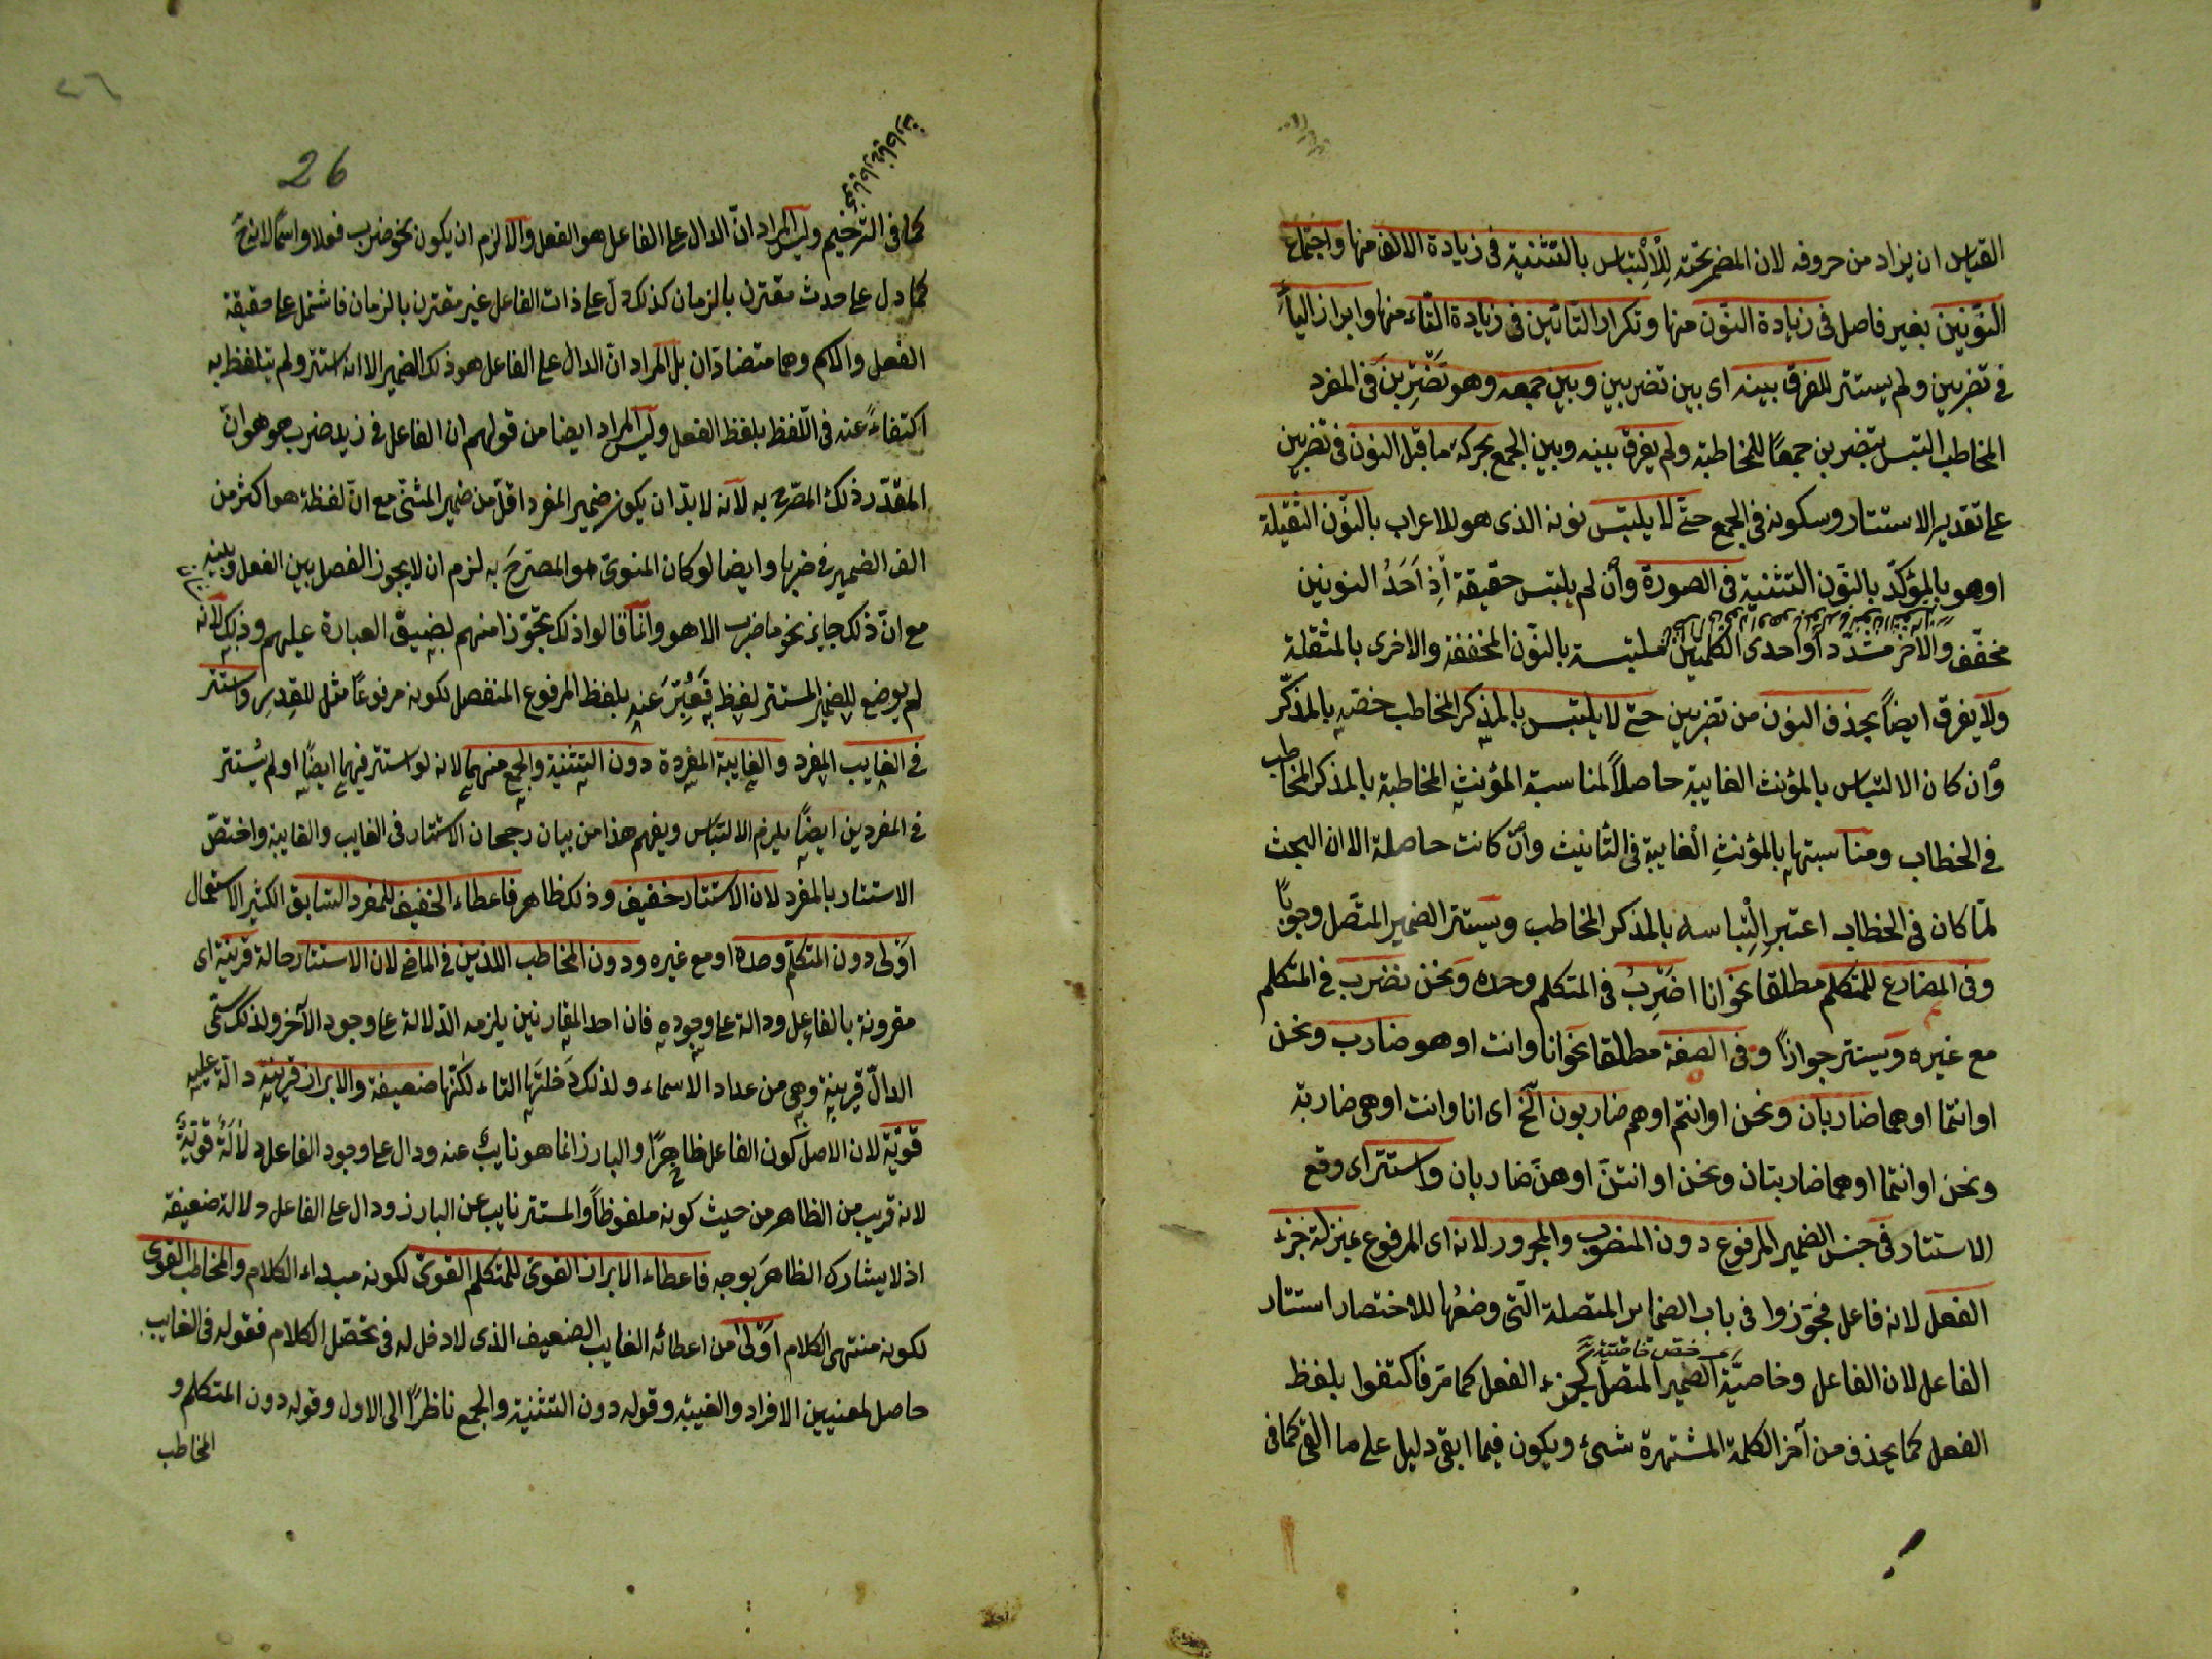 القياس ان يزاد من حروفه لان المضمر تحته للالتباس بالتثنية فى زيادة الالف منها واجتماع
النونين بغير فاصل فى زيادة النون منها وتكرار التائين فى زيادة التاء منها وابراز الياء
فى تضربين ولم يستتر للفرق بينه اى بين تضربين وبين جمعه وهو تضربن فى المفرد
المخاطب التبس بتضربن جمعا للمخاطبة ولم يفرق بينه وبين الجمع بحركة ما قبل النون فى تضربين
على تقدير الاستتار وسكونه فى الجمع حتى لا يلتبس نونه الذى هو للاعراب بالنون الثقيلة
او هو بالمؤكد بالنون التثنية فى الصورة وان لم يلتبس حقيقة اذ احد النونين
مخفف والاخر مشدد او احدى الكلمتين ملتبسة بالنون المخففة والاخرى بالمثقلة
ولا يفرق ايضا بحذف النون من تضربين حتى لا يلتبس بالمذكر المخاطب خصه بالمذكر
وان كان الالتباس بالمؤنث الغايبة حاصلا لمناسبة المؤنث المخاطبة بالمذكر المخاطب
فى الخطاب ومناسبتها بالمؤنث الغايبة فى التأنيث وان كانت حاصلة الا ان البحث
لما كان فى الخطاب اعتبر التباسه بالمذكر المخاطب ويستتر الضمير المتصل وجوبا
وفى المضارع للمتكلم مطلقا نحو انا اضرب فى المتكلم وحده ونحن نضرب فى المتكلم
مع غيره ويستتر جوازا وفى الصفة مطلقا نحو انا وانت او هو ضارب ونحن
او انتما او هما ضاربان ونحن او انتم او هم ضاربون الخ اى انا وانت او هى ضاربة
ونحن او انتما او هما ضاربتان ونحن او انتن او هن ضاربان واستتر اى وقع
الاستتار فى جنس الضمير المرفوع دون المنصوب والمجرور لانه اى المرفوع بمنزلة جزء
الفعل لانه فاعل فجوزوا فى باب الضماير المتصلة التى وضعها للاختصار استتار
الفاعل لان الفاعل وخاصية الضمير المتصل كجزء الفعل كما مر فاكتفوا بلفظ
الفعل كما يحذف من آخر الكلمة المشتهرة شىء ويكون فيما ابقى دليل على ما القى كما فى
26
كما فى الترخيم وليس المراد ان الدال على الفاعل هو الفعل والا لزم ان يكون نحو ضرب فعلا واسما لانه
كما دل على حدث مقترن بالزمان كذلك دل على ذات الفاعل غير مقترن بالزمان فاشتمل على حقيقة
الفعل والاسم وهما متضادان بل المراد ان الدال على الفاعل هو ذلك الضمير الا انه استتر ولم يتلفظ به
اكتفاء عنه فى التلفظ بلفظ الفعل وليس المراد ايضا من قولهم ان الفاعل فى زيد ضرب هو هو ان
المقدر ذلك المصرح به لانه لا بد ان يكون ضمير المفرد اقل من ضمير المثنى مع ان لفظة هو اكثر من
الف الضمير فى ضربا وايضا لو كان المنوى هو المصرح به لزم ان لا يجوز الفصل بين الفعل وبينه
مع ان ذلك جايز نحو ما ضرب الا هو وانما قالوا ذلك تجوزا منهم لضيق العبارة عليهم وذلك لانه
لم يوضع للضمير المستتر لفظ فعبر عنه بلفظ المرفوع المنفصل لكونه مرفوعا مثل للقدر واستتر
فى الغايب المفرد والغايبة المفردة دون التثنية والجمع منهما لانه لو استتر فيهما ايضا او لم يستتر
فى المفردين ايضا يلزم الالتباس ويفهم هذا من بيان رجحان الاستتار فى الغايب والغايبة واختص
الاستتار بالمفرد لان الاستتار خفيف وذلك ظاهر فاعطاء الخفيف للمفرد السابق الكثير الاستعمال
اولى دون المتكلم وحده او مع غيره ودون المخاطب اللذين فى الماضى لان الاستتار حالة قرينة اى
مقرونة بالفاعل ودالة على وجوده فان احد المقارنين يلزمه الدلالة على وجود الآخر ولذلك سمى
الدال قرينة وهى من عداد الاسماء ولذلك دخلتها التاء لكنها ضعيفة والابراز قرينة دالة عليه
قوية لان الاصل كون الفاعل ظاهرا والبارز انما هو نايب عنه ودال على وجود الفاعل دلالة قوية
لانه قريب من الظاهر من حيث كونه ملفوظا والمستتر نايب عن البارز ودال على الفاعل دلالة ضعيفة
اذ لا يشارك الظاهر بوجه فاعطاء الابراز القوى للمتكلم القوى لكونه مبداء الكلام والمخاطب القوى
لكونه منتهى الكلام اولى من اعطائه الغايب الضعيف الذى لا دخل له فى تحصل الكلام فقوله فى الغايب
حاصل لمعنيين الافراد والغيبة وقوله دون التثنية والجمع ناظرا الى الاول وقوله دون المتكلم و
المخاطب